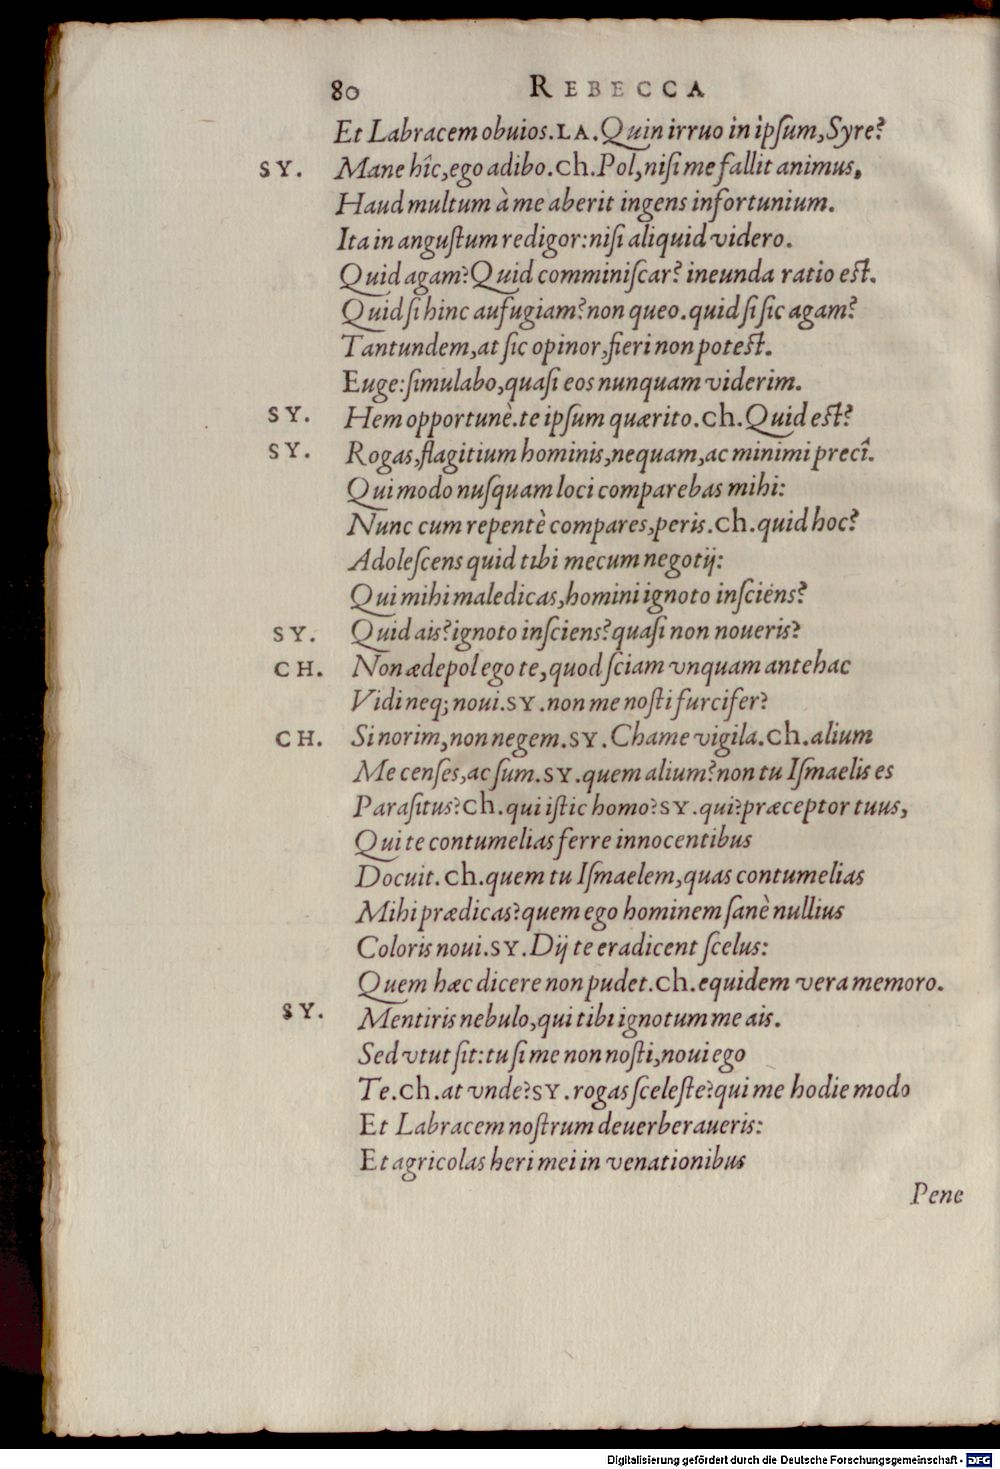 80 REBECCA
Et Labracem obuios. LA. Quin irruo in ipſum, Syre?
SY. Mane hîc, ego adibo. Ch. Pol, niſi me fallit animus,
Haud multum à me aberit ingens infortunium.
Ita in anguſtum redigor: niſi aliquid videro.
Quid agam? Quid comminiſcar? ineunda ratio eſt.
Quid ſi hinc aufugiam? non queo. quid ſi ſic agam?
Tantundem, at ſic opinor, fieri non poteſt.
Euge: ſimulabo, quaſi eos nunquam viderim.
SY. Hem opportunè. te ipſum quærito. Ch. Quid eſt?
SY. Rogas, flagitium hominis, nequam, ac minimi precî.
Qui modo nuſquam loci comparebas mihi:
Nunc cum repentè compares, peris. Ch. quid hoc?
Adoleſcens quid tibi mecum negotij:
Qui mihi maledicas, homini ignoto inſciens?
SY. Quid ais? ignoto inſciens? quaſi non noueris?
CH. Non ædepol ego te, quod ſciam vnquam antehac
Vidi neq; noui. SY. non me noſti furcifer?
CH. Si norim, non negem. SY. Chame vigila. Ch. alium
Me cenſes, ac ſum. SY. quem alium? non tu Iſmaelis es
Paraſitus? Ch. qui iſtic homo? SY. qui? præceptor tuus,
Qui te contumelias ferre innocentibus
Docuit. Ch. quem tu Iſmaelem, quas contumelias
Mihi prædicas? quem ego hominem ſanè nullius
Coloris noui. SY. Dij te eradicent ſcelus:
Quem hæc dicere non pudet. Ch. equidem vera memoro.
SY. Mentiris nebulo, qui tibi ignotum me ais.
Sed vtut ſit: tu ſi me non noſti, noui ego
Te. Ch. at vnde? SY. rogas ſceleſte? qui me hodie modo
Et Labracem noſtrum deuerberaueris:
Et agricolas heri mei in venationibus
Pene
Digitalisierung gefördert durch die Deutsche Forschungsgemeinschaft - DFG